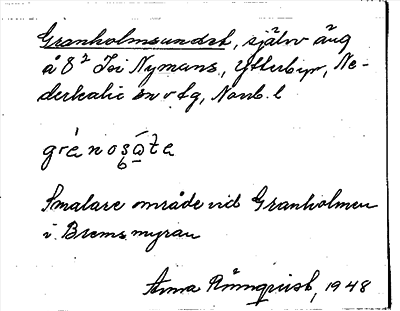 Granholmsundet, själv äng
å 8² Joi Nymans, Ytterbyn, Ne-
derkalix sn o tg, Norrb. l
Smalare område vid Granholmen
i Bremsmyran
Anna Rönnqvist, 1948